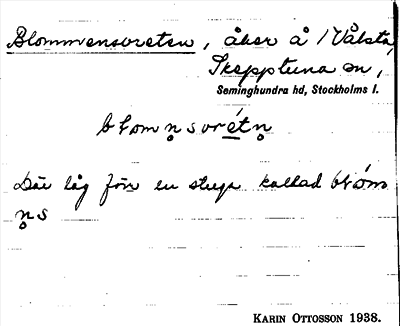 Blommensvreten, åker å /Vålsta,
Skepptuna sn,
Seminghundra hd, Stockholms l.
blomn̥svrétn̥
Där låg förr en stuga kallad blóm
n̥s
KARIN OTTOSSON 1938.